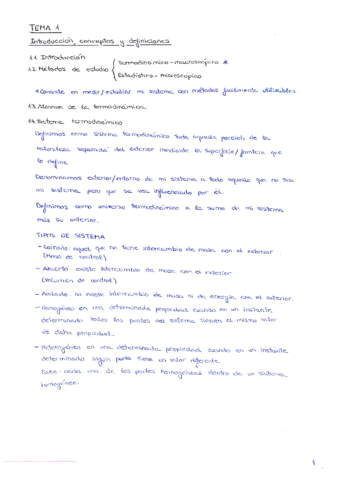 TEMA 1
Introducción, conceptos y definiciones
1.1 Introducción
1.2 Métodos de estudio { Termodinámico - macroscópico *
Estadístico - microscópico
* Consiste en medir/estudiar mi sistema con métodos fácilmente utilizables
1.3. Alcance de la termodinámica.
1.4. Sistema termodinámico
Definimos como sistema termodinámico toda aquella parcela de la
naturaleza separada del exterior mediante la superficie/frontera que
lo define.
Denominamos exterior/entorno de mi sistema a todo aquello que no sea
mi sistema pero que se vea influenciado por él.
Definimos como universo termodinámico a la suma de mi sistema
más su exterior.
TIPOS DE SISTEMA
- Cerrado: aquel que no tiene intercambio de masa con el exterior
(Masa de control)
- Abierto: existe intercambio de masa con el exterior
(Volumen de control)
- Aislado: no existe intercambio de masa ni de energía con el exterior.
- Homogéneo en una determinada propiedad cuando en un instante
determinado todos los puntos del sistema tienen el mismo valor
de dicha propiedad.
- Heterogéneo en una determinada propiedad cuando en un instante
determinado algún punto tiene un valor diferente.
Fase: cada una de las partes homogéneas dentro de un sistema
homogéneo.
1